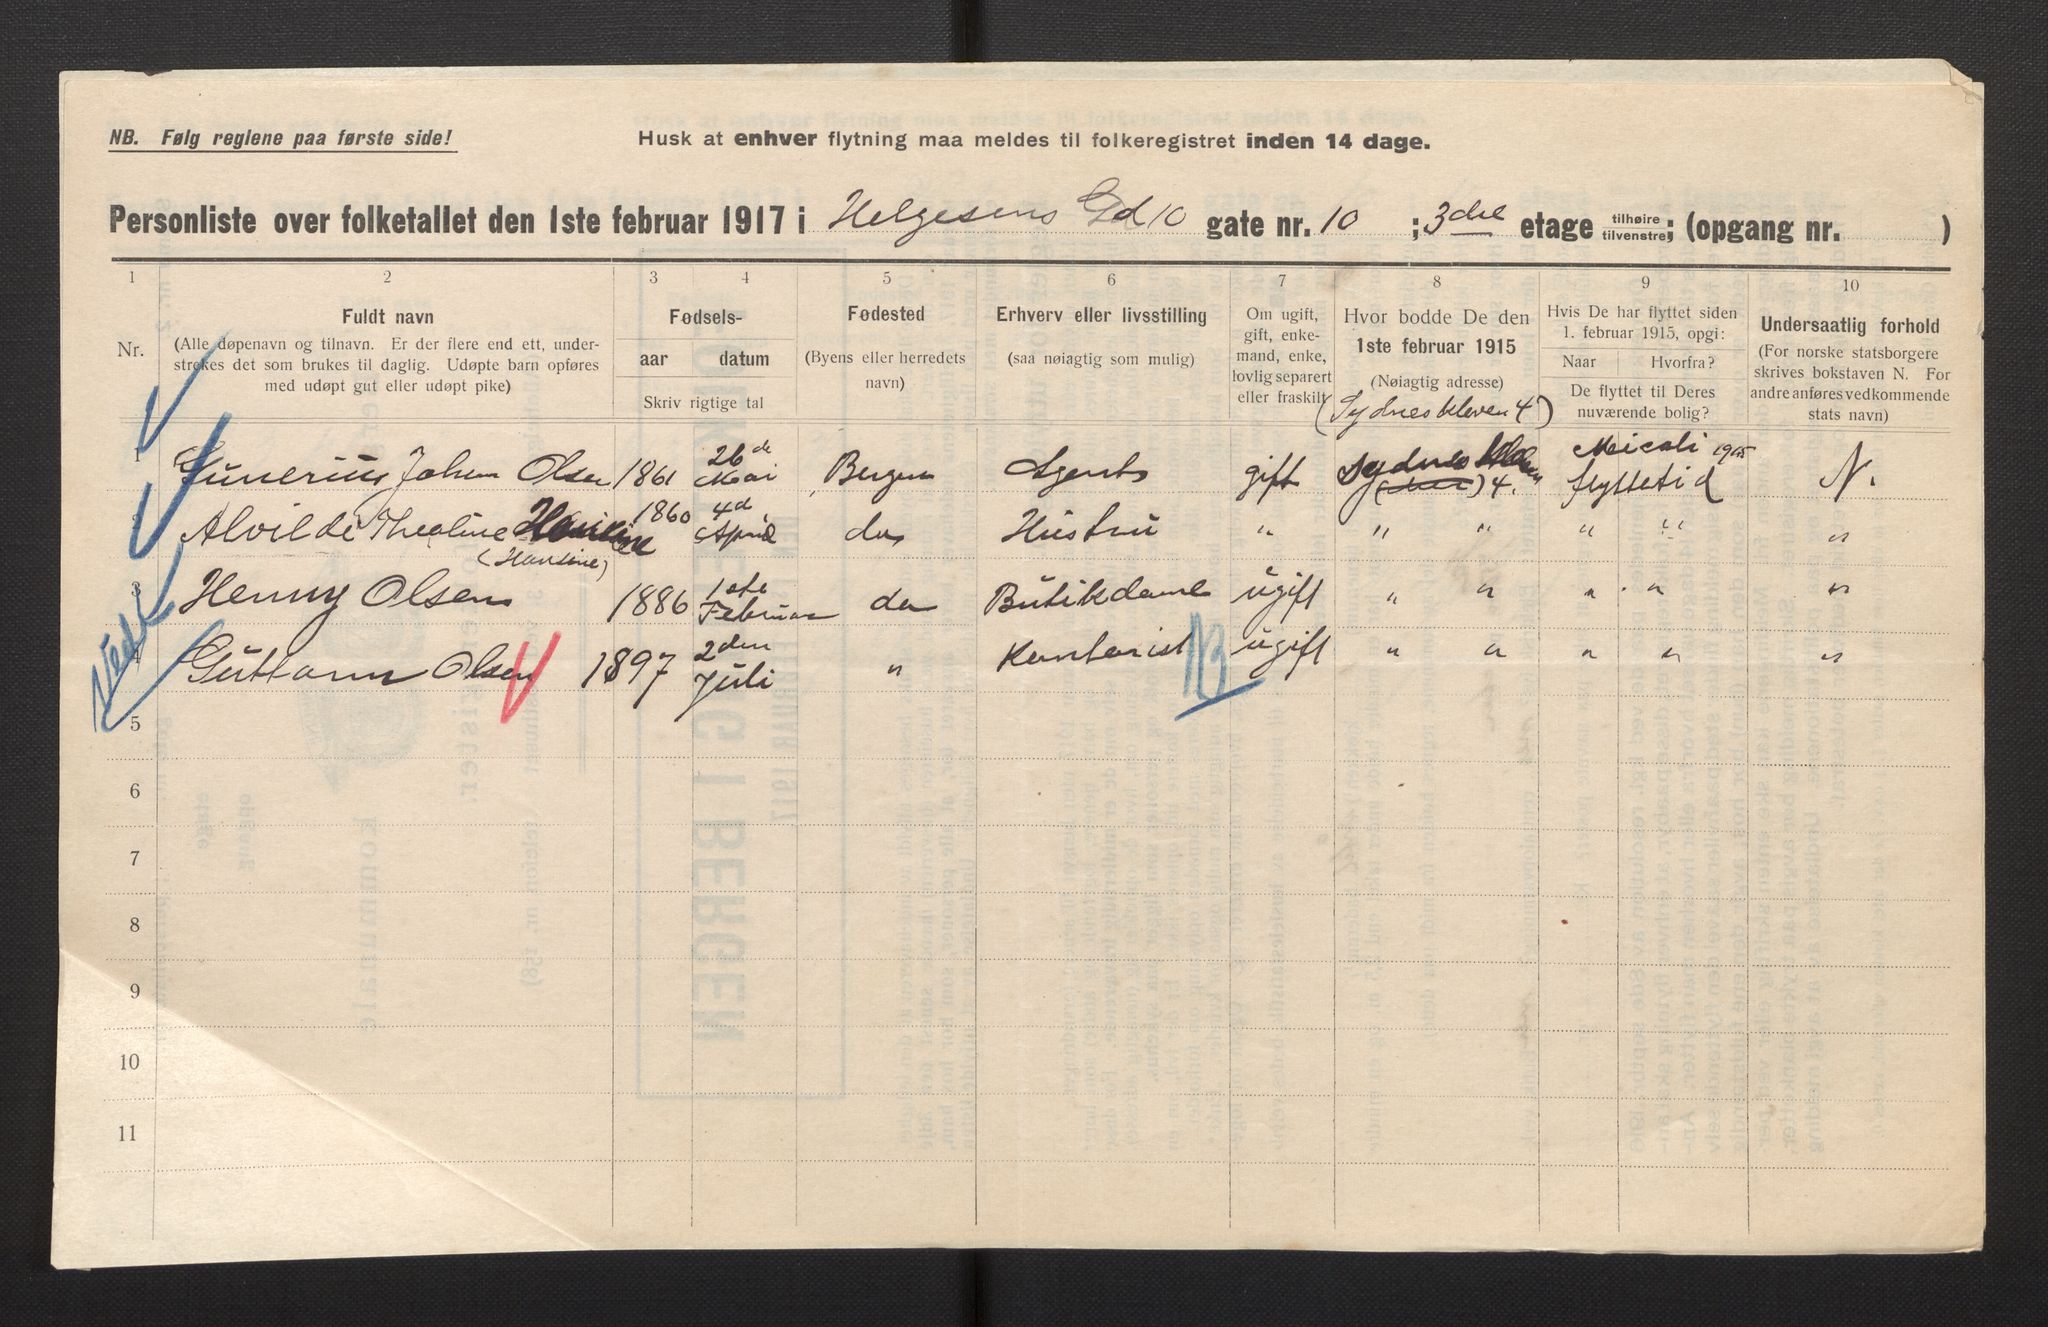 NB. Følg reglene paa første side!
Husk at enhver flytning maa meldes til folkeregistret inden 14 dage.
Personliste over folketallet den 1ste februar 1917 i Helgesens Gd 10 gate nr. 10 ; 3die etage tilhøire tilvenstre; (opgang nr. )
1 2 3 4 5 6 7 8 9 10
Nr.
Fuldt navn
(Alle døpenavn og tilnavn. Er der flere end ett, under-
strekes det som brukes til daglig. Udøpte barn opføres
med udøpt gut eller udøpt pike)
Fødsels-
aar datum
Skriv rigtige tal
Fødested
(Byens eller herredets
navn)
Erhverv eller livsstilling
(saa nøiagtig som mulig)
Om ugift,
gift, enke-
mand, enke,
lovlig separert
eller fraskilt
Hvor bodde De den
1ste februar 1915
(Nøiagtig adresse)
(Sydneskleven 4)
Hvis De har flyttet siden
1. februar 1915, opgi:
Naar Hvorfra?
De flyttet til Deres
nuværende bolig?
Undersaatlig forhold
(For norske statsborgere
skrives bokstaven N. For
andre anføres vedkommende
stats navn)
1 Gunerius Johan Olsen 1861 26de Mai Bergen Agent gift Sydnes 4. Micali 1915 flyttetid N.
2 Alvilde Thealine (Hansine) 1860 4d April do Hustru " " " " " "
3 Henny Olsen 1886 1ste Februar do Butikdame ugift " " " " "
4 Guttorm Olsen 1897 2den Juli " Kontorist NB ugift " " " " "
5
6
7
8
9
10
11